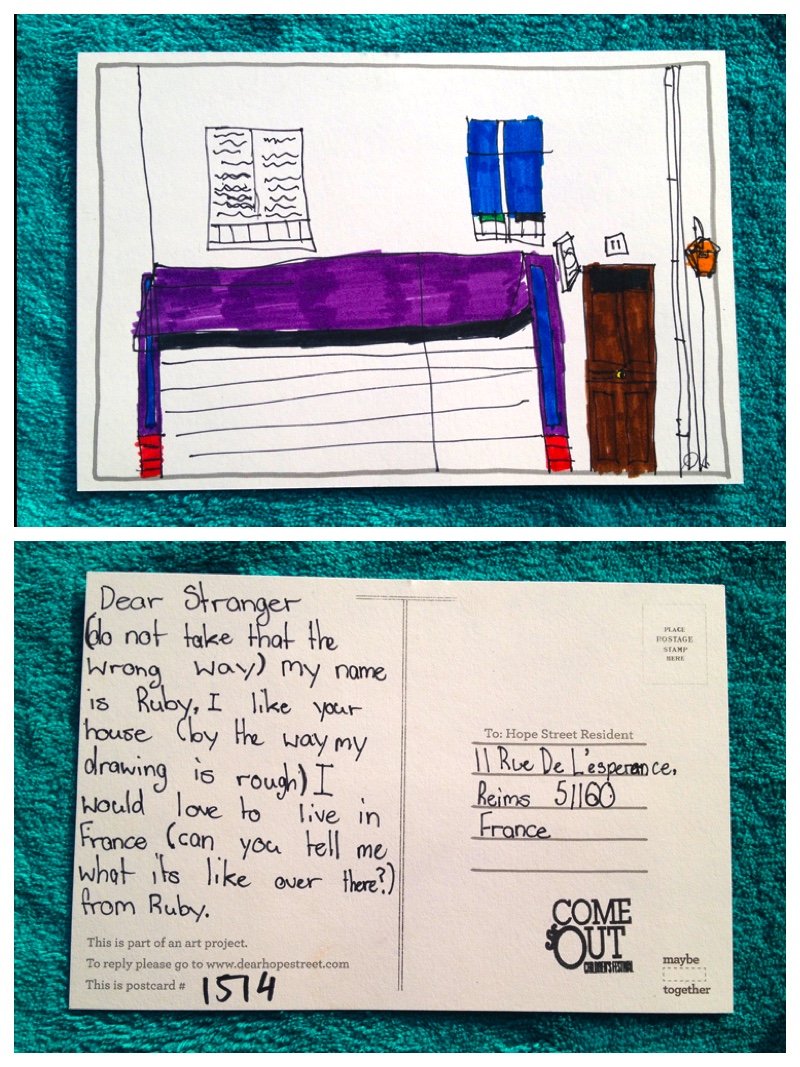 Dear Stranger
(do not take that the
wrong way) my name
is Ruby, I like your
house (by the way my
drawing is rough) I
would love to live in
France (can you tell me
what its like over there?)
from Ruby.
This is part of an art project.
To reply please go to www.dearhopestreet.com
This is postcard # 1514
PLACE
POSTAGE
STAMP
HERE
To: Hope Street Resident
11 Rue De L'esperance,
Reims 51160
France
COME
OUT
CHILDREN'S FESTIVAL
maybe
together